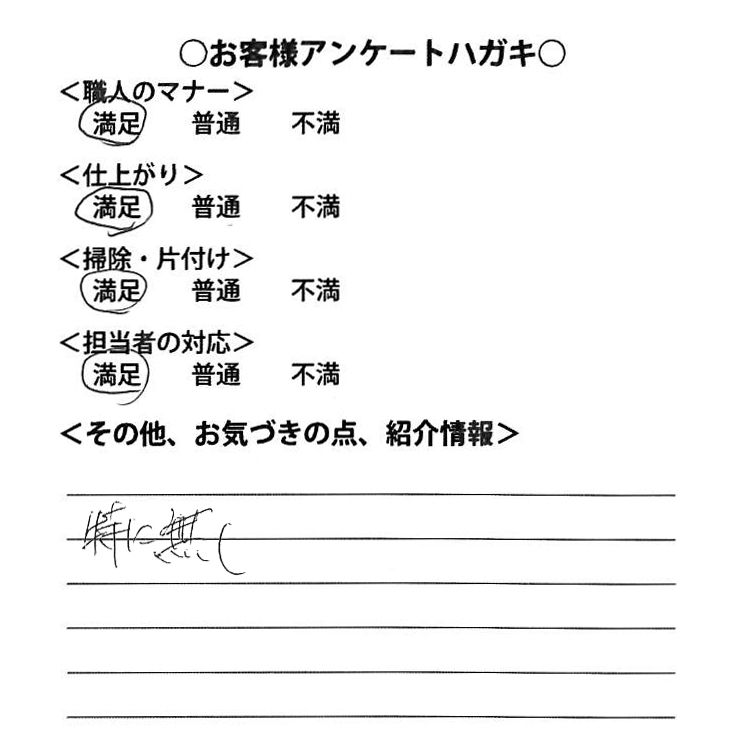 ○お客様アンケートハガキ○
＜職人のマナー＞
満足 普通 不満
＜仕上がり＞
満足 普通 不満
＜掃除・片付け＞
満足 普通 不満
＜担当者の対応＞
満足 普通 不満
＜その他、お気づきの点、紹介情報＞
特に無し